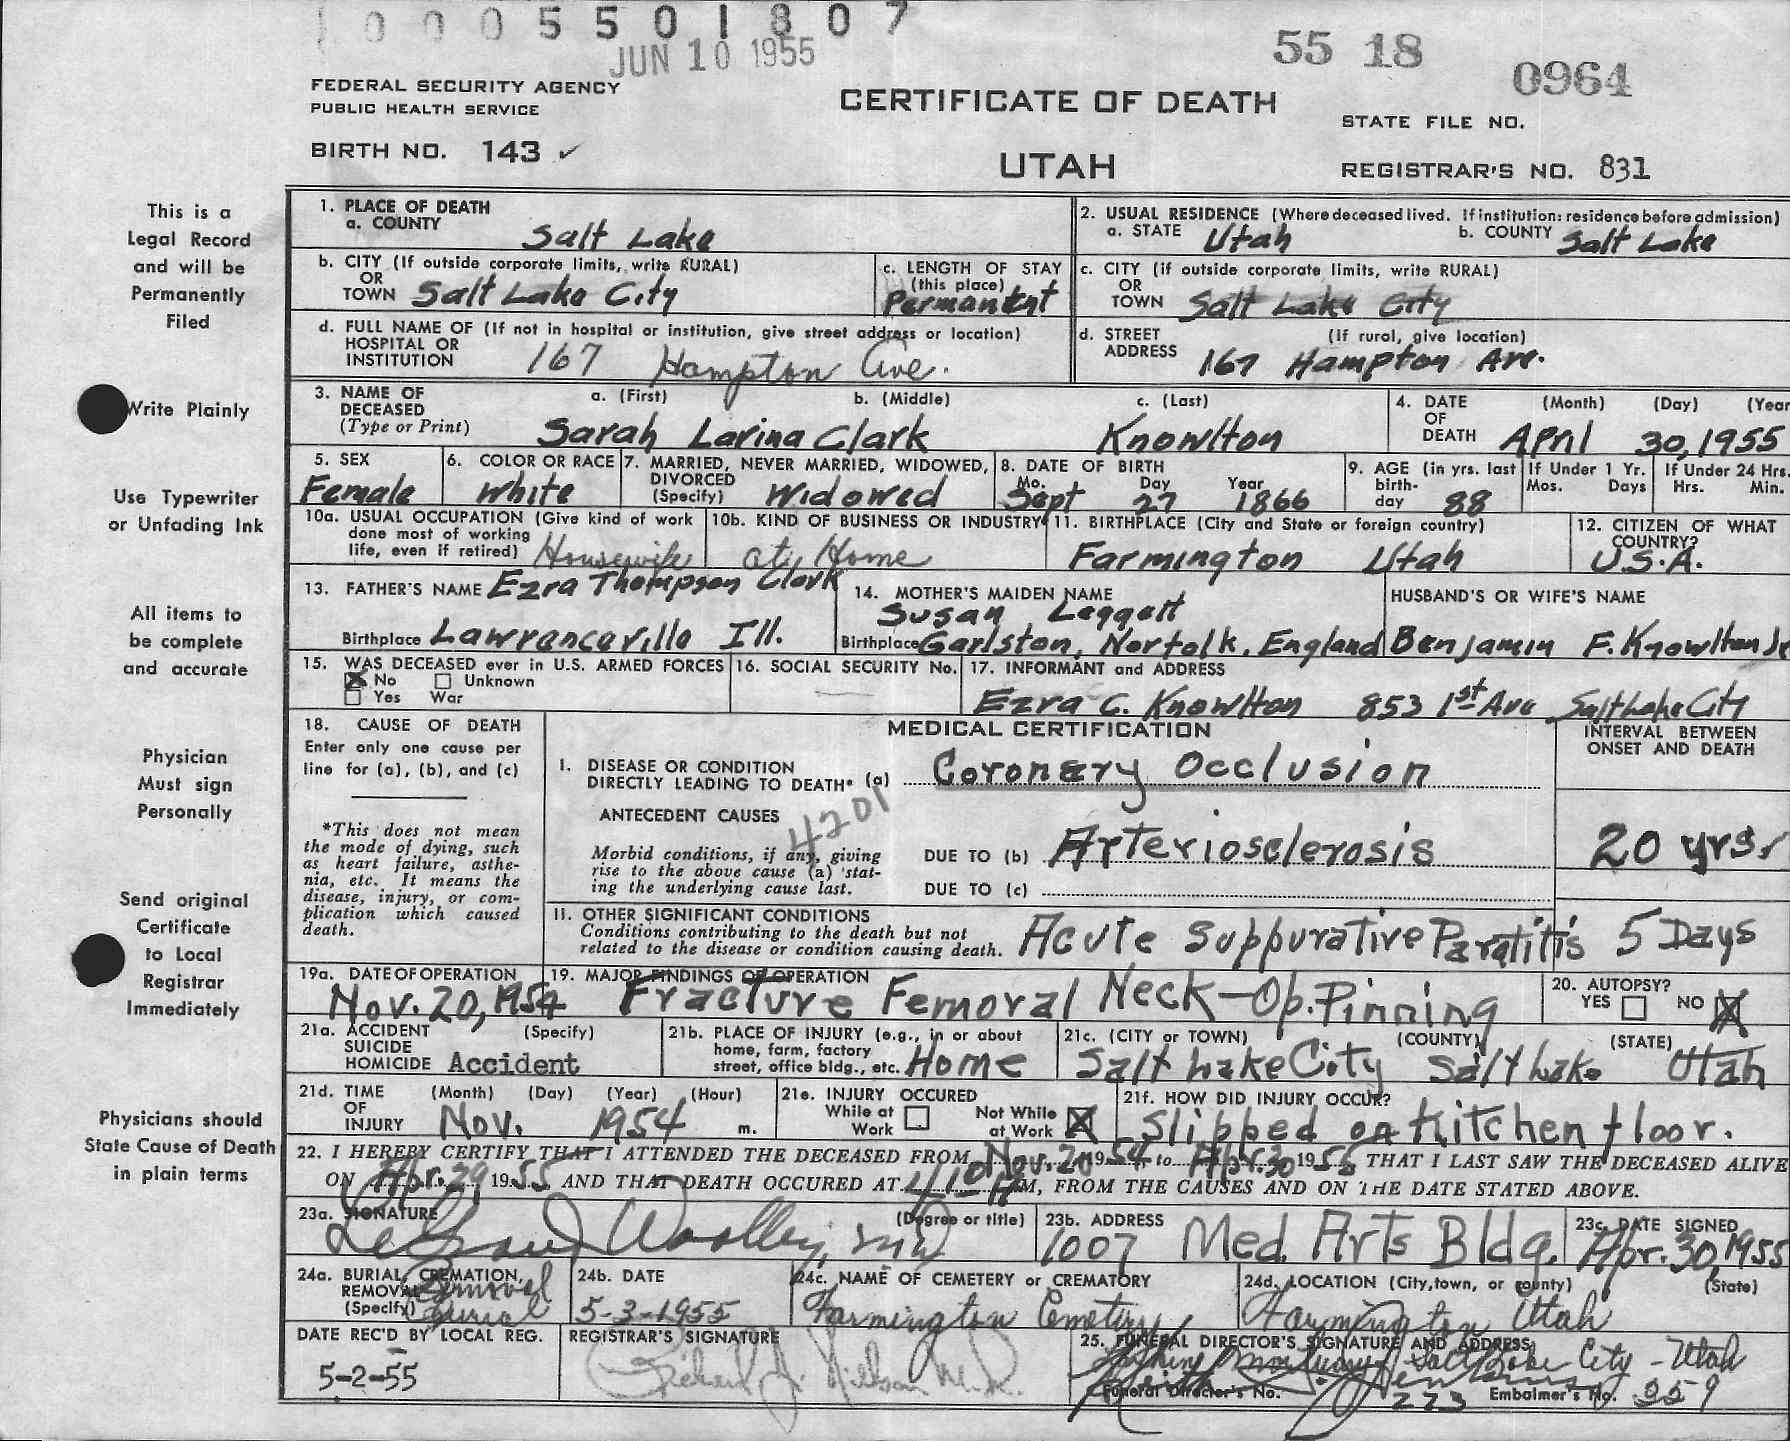 0005501807
JUN 10 1955
55 18
0964
FEDERAL SECURITY AGENCY
PUBLIC HEALTH SERVICE
CERTIFICATE OF DEATH
STATE FILE NO.
BIRTH NO. 143 ✓
UTAH
REGISTRAR'S NO. 831
This is a
Legal Record
and will be
Permanently
Filed
Write Plainly
Use Typewriter
or Unfading Ink
All items to
be complete
and accurate
Physician
Must sign
Personally
Send original
Certificate
to Local
Registrar
Immediately
Physicians should
State Cause of Death
in plain terms
1. PLACE OF DEATH
a. COUNTY Salt Lake
2. USUAL RESIDENCE (Where deceased lived. If institution: residence before admission)
a. STATE Utah b. COUNTY Salt Lake
b. CITY (If outside corporate limits, write RURAL)
OR
TOWN Salt Lake City
c. LENGTH OF STAY
(this place)
Permanent
c. CITY (if outside corporate limits, write RURAL)
OR
TOWN Salt Lake City
d. FULL NAME OF (If not in hospital or institution, give street address or location)
HOSPITAL OR
INSTITUTION 167 Hampton Ave.
d. STREET (If rural, give location)
ADDRESS 167 Hampton Ave.
3. NAME OF DECEASED
(Type or Print)
a. (First) b. (Middle) c. (Last)
Sarah Lavina Clark Knowlton
4. DATE OF DEATH (Month) (Day) (Year
April 30, 1955
5. SEX
Female
6. COLOR OR RACE
White
7. MARRIED, NEVER MARRIED, WIDOWED,
DIVORCED
(Specify) Widowed
8. DATE OF BIRTH
Mo. Day Year
Sept 27 1866
9. AGE (in yrs. last
birth-
day 88
If Under 1 Yr.
Mos. Days
If Under 24 Hrs.
Hrs. Min.
10a. USUAL OCCUPATION (Give kind of work
done most of working
life, even if retired) Housewife
10b. KIND OF BUSINESS OR INDUSTRY
at Home
11. BIRTHPLACE (City and State or foreign country)
Farmington Utah
12. CITIZEN OF WHAT
COUNTRY?
U.S.A.
13. FATHER'S NAME Ezra Thompson Clark
Birthplace Lawrenceville Ill.
14. MOTHER'S MAIDEN NAME
Susan Leggett
Birthplace Garlston, Norfolk, England
HUSBAND'S OR WIFE'S NAME
Benjamin F. Knowlton Jr
15. WAS DECEASED ever in U.S. ARMED FORCES
☒ No ☐ Unknown
☐ Yes War
16. SOCIAL SECURITY No.
17. INFORMANT and ADDRESS
Ezra C. Knowlton 853 1st Ave Salt Lake City
18. CAUSE OF DEATH
Enter only one cause per
line for (a), (b), and (c)
*This does not mean
the mode of dying, such
as heart failure, asthe-
nia, etc. It means the
disease, injury, or com-
plication which caused
death.
MEDICAL CERTIFICATION
INTERVAL BETWEEN
ONSET AND DEATH
I. DISEASE OR CONDITION
DIRECTLY LEADING TO DEATH* (a) Coronary Occlusion
4201
ANTECEDENT CAUSES
Morbid conditions, if any, giving
rise to the above cause (a) stat-
ing the underlying cause last.
DUE TO (b) Arteriosclerosis 20 yrs.
DUE TO (c)
II. OTHER SIGNIFICANT CONDITIONS
Conditions contributing to the death but not
related to the disease or condition causing death.
Acute Suppurative Parotitis 5 Days
19a. DATE OF OPERATION
Nov. 20, 1954
19. MAJOR FINDINGS OF OPERATION
Fracture Femoral Neck - Op. Pinning
20. AUTOPSY?
YES ☐ NO ☒
21a. ACCIDENT (Specify)
SUICIDE
HOMICIDE Accident
21b. PLACE OF INJURY (e.g., in or about
home, farm, factory
street, office bldg., etc. Home
21c. (CITY or TOWN) (COUNTY) (STATE)
Salt Lake City Salt Lake Utah
21d. TIME (Month) (Day) (Year) (Hour)
OF
INJURY Nov. 1954 m.
21e. INJURY OCCURED
While at Work ☐ Not While at Work ☒
21f. HOW DID INJURY OCCUR?
Slipped on Kitchen floor.
22. I HEREBY CERTIFY THAT I ATTENDED THE DECEASED FROM Nov. 20 1954 to Apr. 30 1955 THAT I LAST SAW THE DECEASED ALIVE
ON Apr. 29, 1955 AND THAT DEATH OCCURED AT M, FROM THE CAUSES AND ON THE DATE STATED ABOVE.
23a. SIGNATURE (Degree or title)
LeGrand Woolley, MD
23b. ADDRESS
1007 Med. Arts Bldg.
23c. DATE SIGNED
Apr. 30, 1955
24a. BURIAL, CREMATION,
REMOVAL
(Specify) Removal
Burial
24b. DATE
5-3-1955
24c. NAME OF CEMETERY or CREMATORY
Farmington Cemetery
24d. LOCATION (City, town, or county) (State)
Farmington Utah
DATE REC'D BY LOCAL REG.
5-2-55
REGISTRAR'S SIGNATURE
25. FUNERAL DIRECTOR'S SIGNATURE AND ADDRESS
Salt Lake City - Utah
Funeral Director's No. 273 Embalmer's No. 359